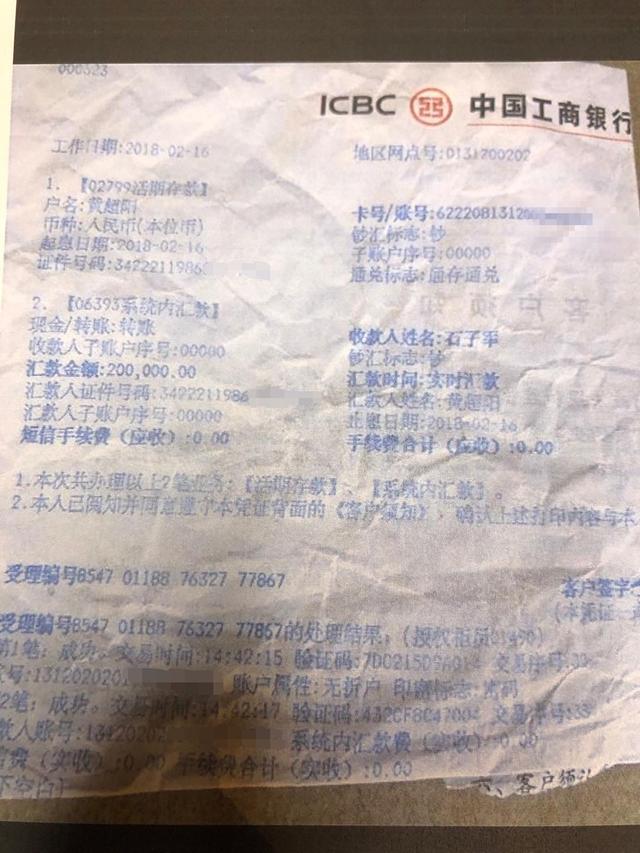 000323
ICBC 中国工商银行
工作日期:2018-02-16 地区网点号:0131200202
1. 【02799活期存款】
户名:黄超阳 卡号/账号:6222081312
币种:人民币(本位币) 钞汇标志:钞
起息日期:2018-02-16 子账户序号:00000
证件号码:3422211986 通兑标志:通存通兑
客户须知
2. 【06393系统内汇款】
现金/转账:转账 收款人姓名:石子军
收款人子账户序号:00000 钞汇标志:钞
汇款金额:200,000.00 汇款时间:实时汇款
汇款人证件号码:3422211986 汇款人姓名:黄超阳
汇款人子账户序号:00000 止息日期:2018-02-16
短信手续费(应收):0.00 手续费合计(应收):0.00
1.本次共办理以上2笔业务:【活期存款】、【系统内汇款】。
2.本人已阅知并同意遵守本凭证背面的《客户须知》,确认上述打印内容与本
受理编号8547 01188 76327 77867 客户签字
(本凭证一
受理编号8547 01188 76327 77867的处理结果:(授权柜员
第1笔: 成功。交易时间:14:42:15 验证码: 交易序号:33
号:1312020201 账户属性:无折户 印密标志:密码
2笔: 成功。交易时间:14:42:17 验证码: 交易序号:33
款人账号:13120202 系统内汇款费(实收):0.00
信费(实收):0.00 手续费合计(实收):0.00
下空白)
六、客户须